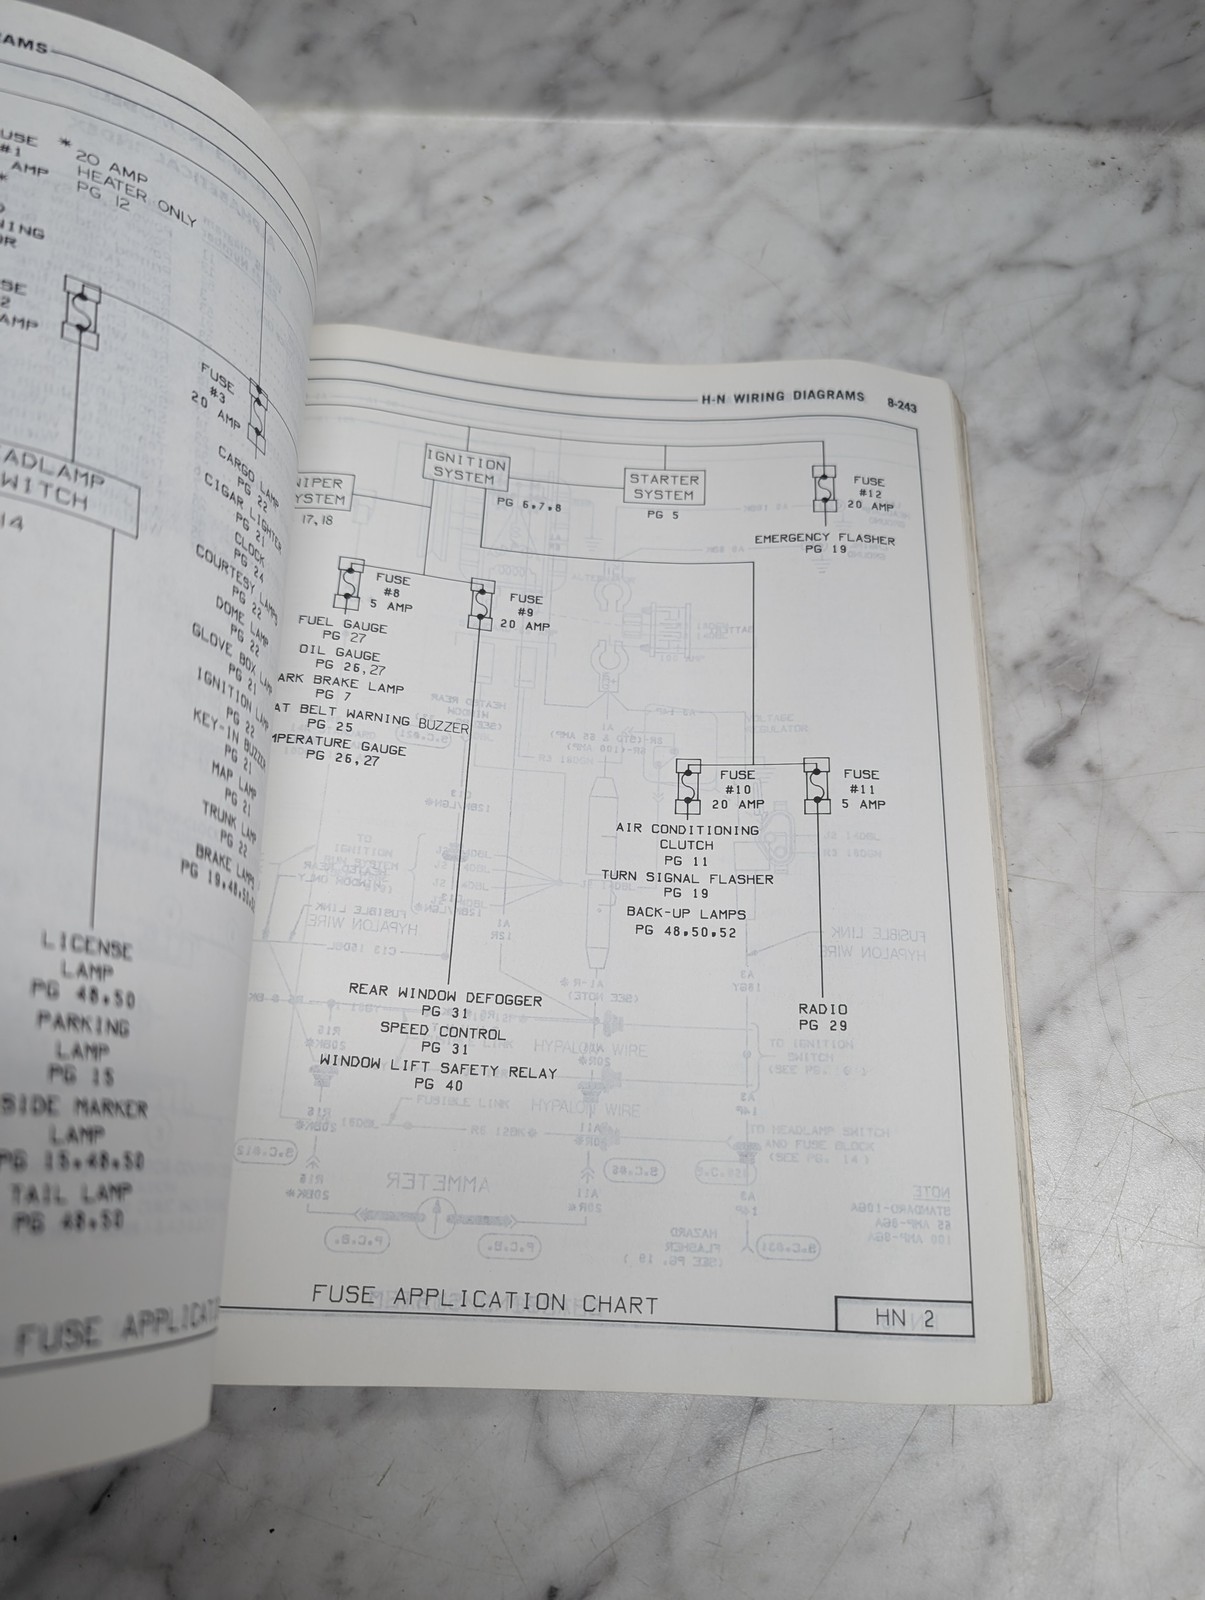 AMS
USE
#1
AMP
*
* 20 AMP
HEATER ONLY
PG 12
NING
OR
SE
2
AMP
FUSE
#3
20 AMP
CARGO LAMP
PG 22
CIGAR LIGHTER
PG 21
CLOCK
PG 24
COURTESY LAMPS
PG 22
DOME LAMP
PG 22
GLOVE BOX LAMP
PG 21
IGNITION LAMP
PG 22
KEY-IN BUZZER
PG 21
MAP LAMP
PG 21
TRUNK LAMP
PG 22
BRAKE LAMPS
PG 19,48,50,52
ADLAMP
WITCH
14
LICENSE
LAMP
PG 48,50
PARKING
LAMP
PG 15
SIDE MARKER
LAMP
PG 15,48,50
TAIL LAMP
PG 48,50
FUSE APPLICATI
H-N WIRING DIAGRAMS 8-243
WIPER
YSTEM
17,18
IGNITION
SYSTEM
PG 6,7,8
STARTER
SYSTEM
PG 5
FUSE
#12
20 AMP
EMERGENCY FLASHER
PG 19
FUSE
#8
5 AMP
FUEL GAUGE
PG 27
OIL GAUGE
PG 26,27
ARK BRAKE LAMP
PG 7
AT BELT WARNING BUZZER
PG 25
MPERATURE GAUGE
PG 26,27
FUSE
#9
20 AMP
REAR WINDOW DEFOGGER
PG 31
SPEED CONTROL
PG 31
WINDOW LIFT SAFETY RELAY
PG 40
FUSE
#10
20 AMP
AIR CONDITIONING
CLUTCH
PG 11
TURN SIGNAL FLASHER
PG 19
BACK-UP LAMPS
PG 48,50,52
FUSE
#11
5 AMP
RADIO
PG 29
FUSE APPLICATION CHART
HN 2